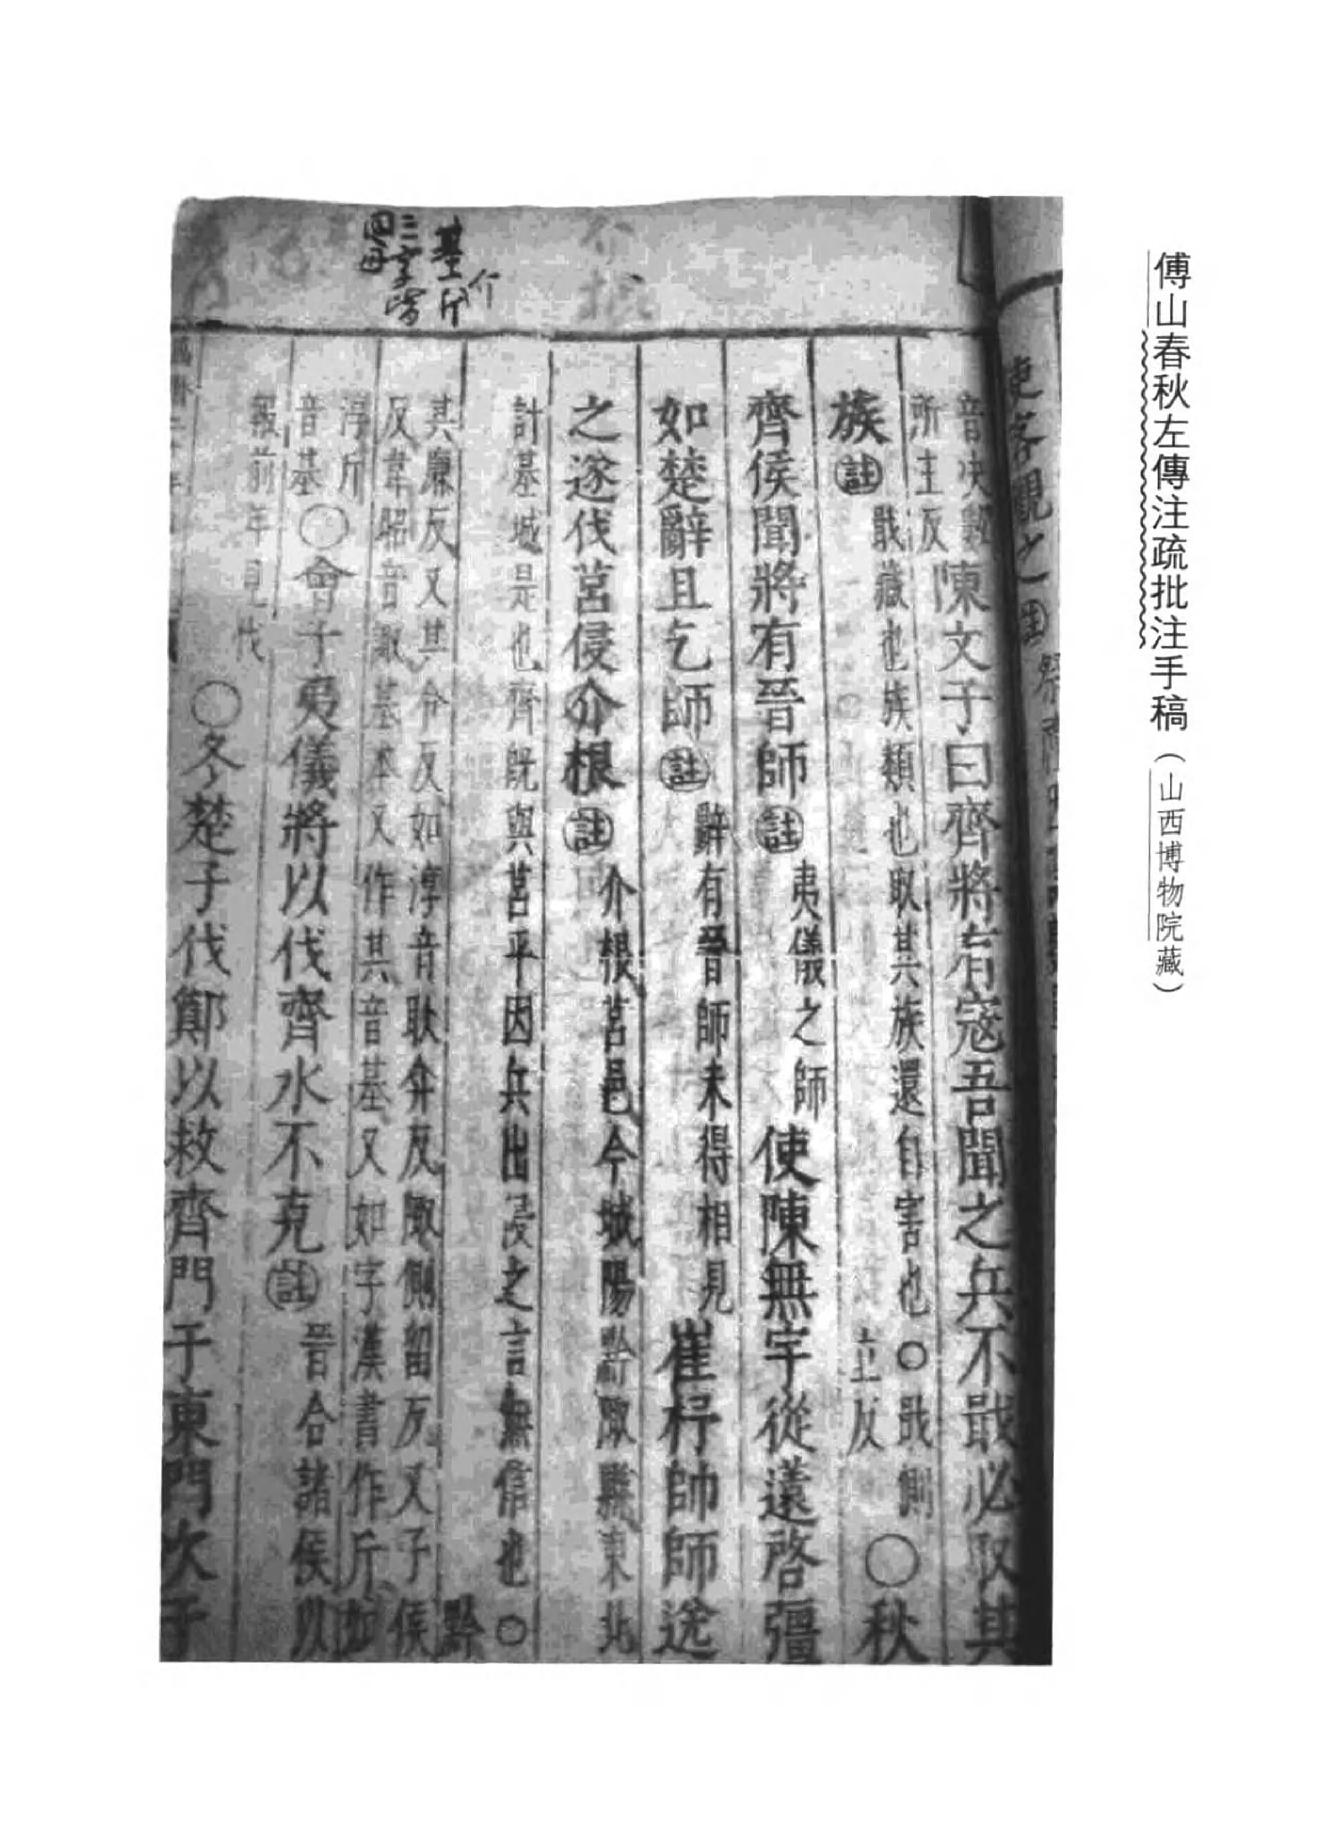 傅山春秋左傳注疏批注手稿（山西博物院藏）
使客觀之註祭
音决數
所主反
陳文子曰齊將有寇吾聞之兵不戢必取其
族註
戢藏也族類也取其族還自害也○戢側
立反
○秋
齊侯聞將有晉師註
夷儀之師
使陳無宇從薳啓彊
如楚辭且乞師註
辭有晉師未得相見
崔杼帥師送
之遂伐莒侵介根註
介根莒邑今城陽黔陬縣東北
計基城是也齊既與莒平因兵出侵之言無信也○
黔
其廉反又其今反如淳音耿弇反陬側留反又子侯
反韋昭音諏基本又作其音基又如字漢書作斤如
淳斤
音基
○會于夷儀將以伐齊水不克註
晉合諸侯以
報前年見伐
○冬楚子伐鄭以救齊門于東門次于
基
介
三字皆